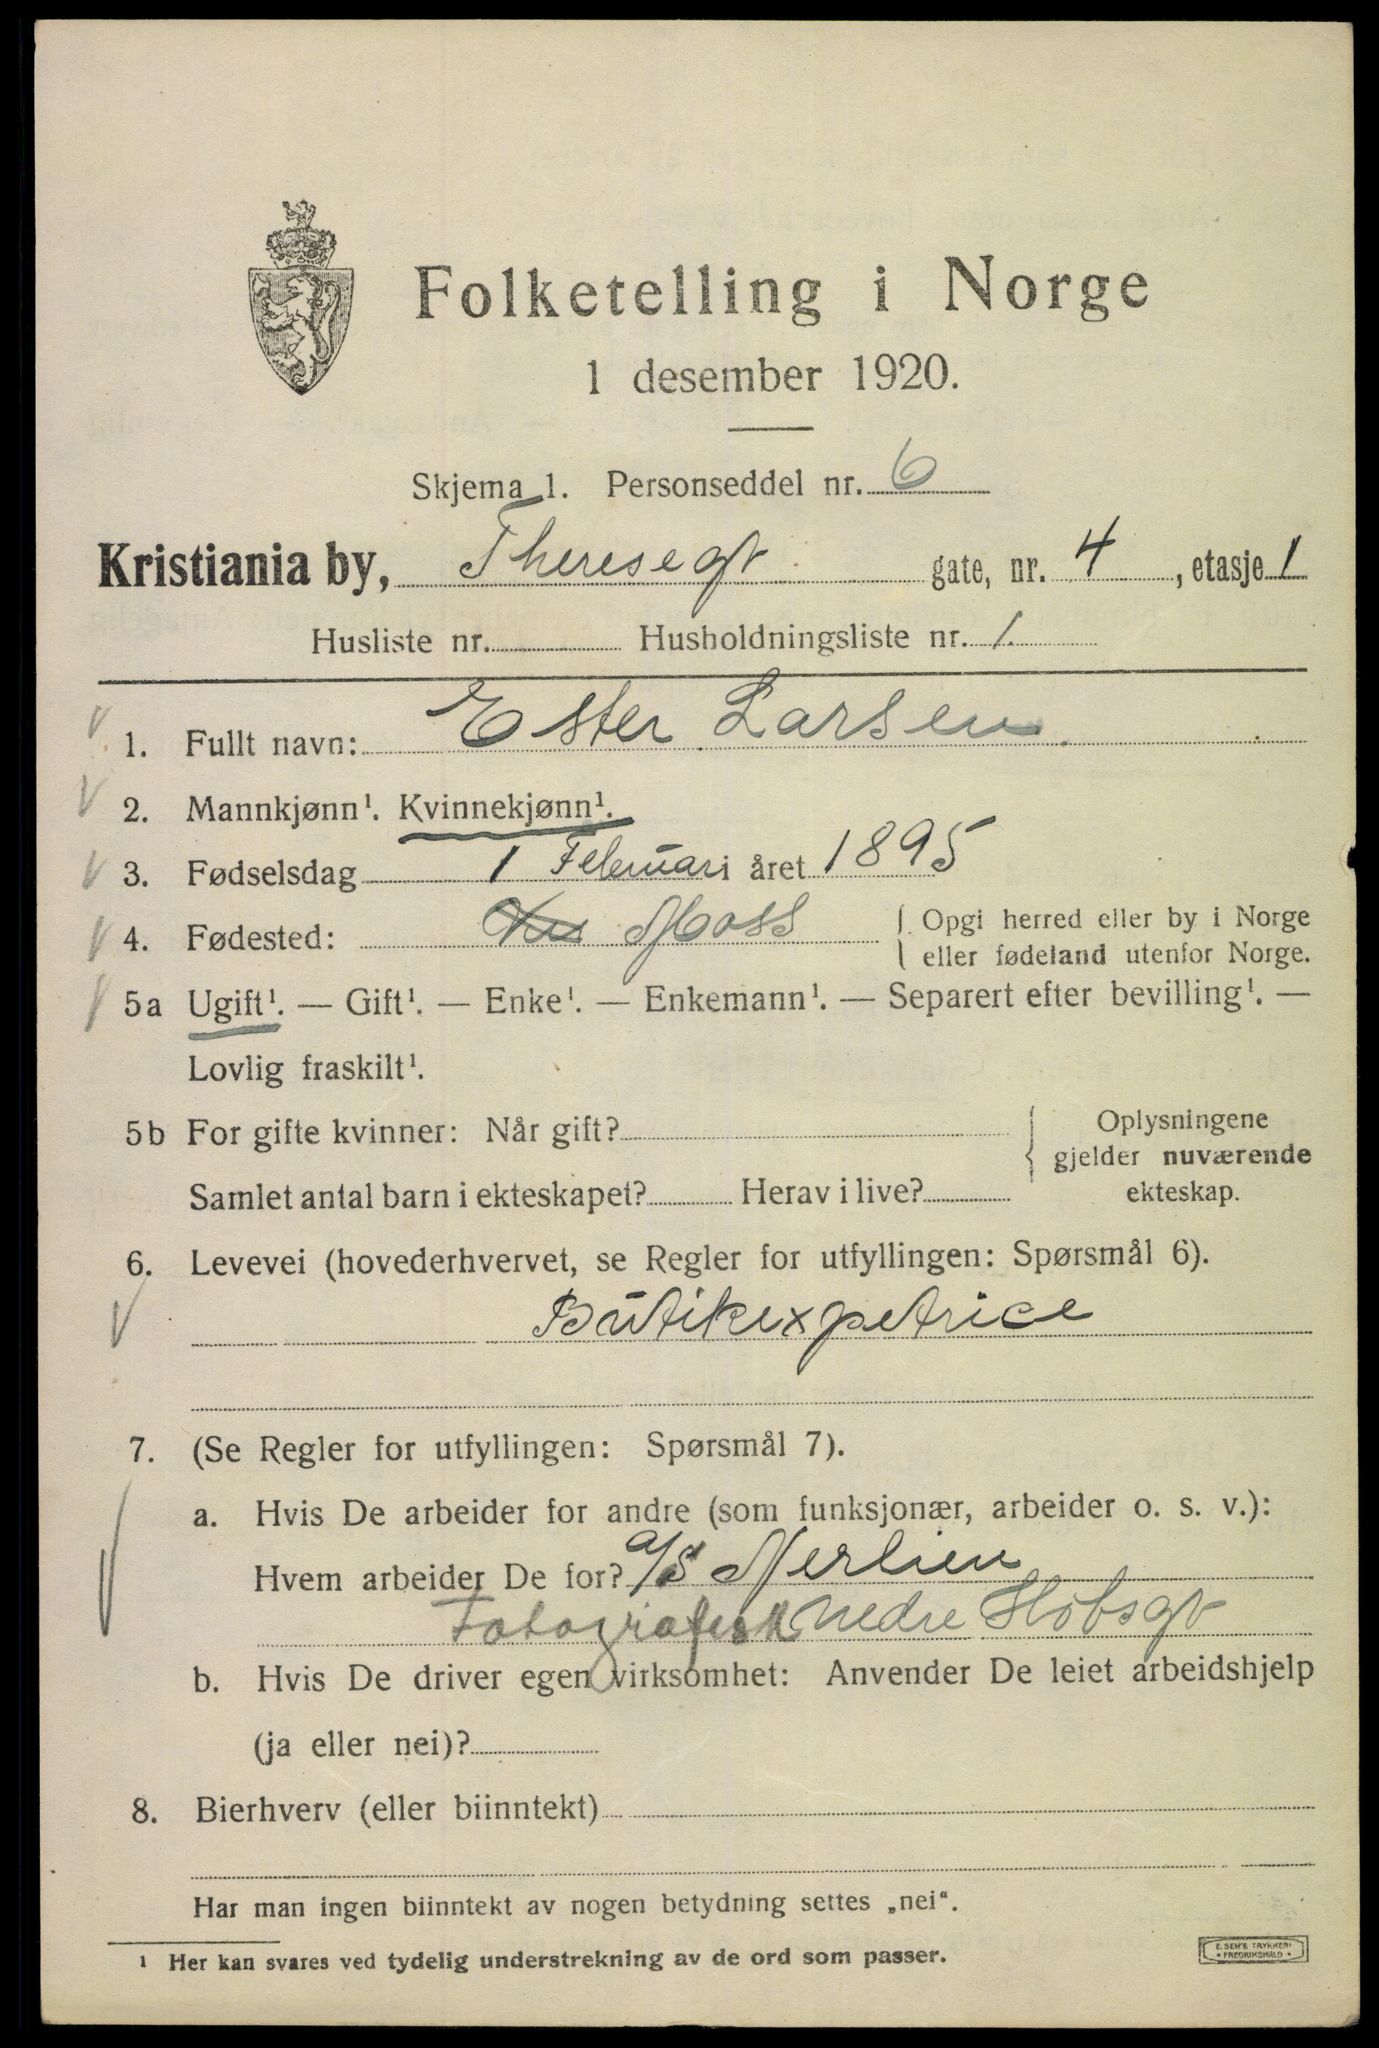 Folketelling i Norge
1 desember 1920.
Skjema 1. Personseddel nr. 6
Kristiania by, Theresegt gate, nr. 4, etasje 1
Husliste nr. Husholdningsliste nr. 1.
1. Fullt navn: Ester Larsen
2. Mannkjønn¹. Kvinnekjønn¹.
3. Fødselsdag 1 Februari året 1895
4. Fødested: Moss { Opgi herred eller by i Norge
eller fødeland utenfor Norge.
5a Ugift¹. — Gift¹. — Enke¹. — Enkemann¹. — Separert efter bevilling¹. —
Lovlig fraskilt¹.
5b For gifte kvinner: Når gift? { Oplysningene
gjelder nuværende
Samlet antal barn i ekteskapet? Herav i live? ekteskap.
6. Levevei (hovederhvervet, se Regler for utfyllingen: Spørsmål 6).
Butikexpetrice
7. (Se Regler for utfyllingen: Spørsmål 7).
a. Hvis De arbeider for andre (som funksjonær, arbeider o. s. v.):
Hvem arbeider De for? a/s Nerlien
Fotografisk Nedre Slotsgt
b. Hvis De driver egen virksomhet: Anvender De leiet arbeidshjelp
(ja eller nei)?
8. Bierhverv (eller biinntekt)
Har man ingen biinntekt av nogen betydning settes „nei“.
¹ Her kan svares ved tydelig understrekning av de ord som passer.
E. SEM'S TRYKKERI
• FREDRIKSHALD •